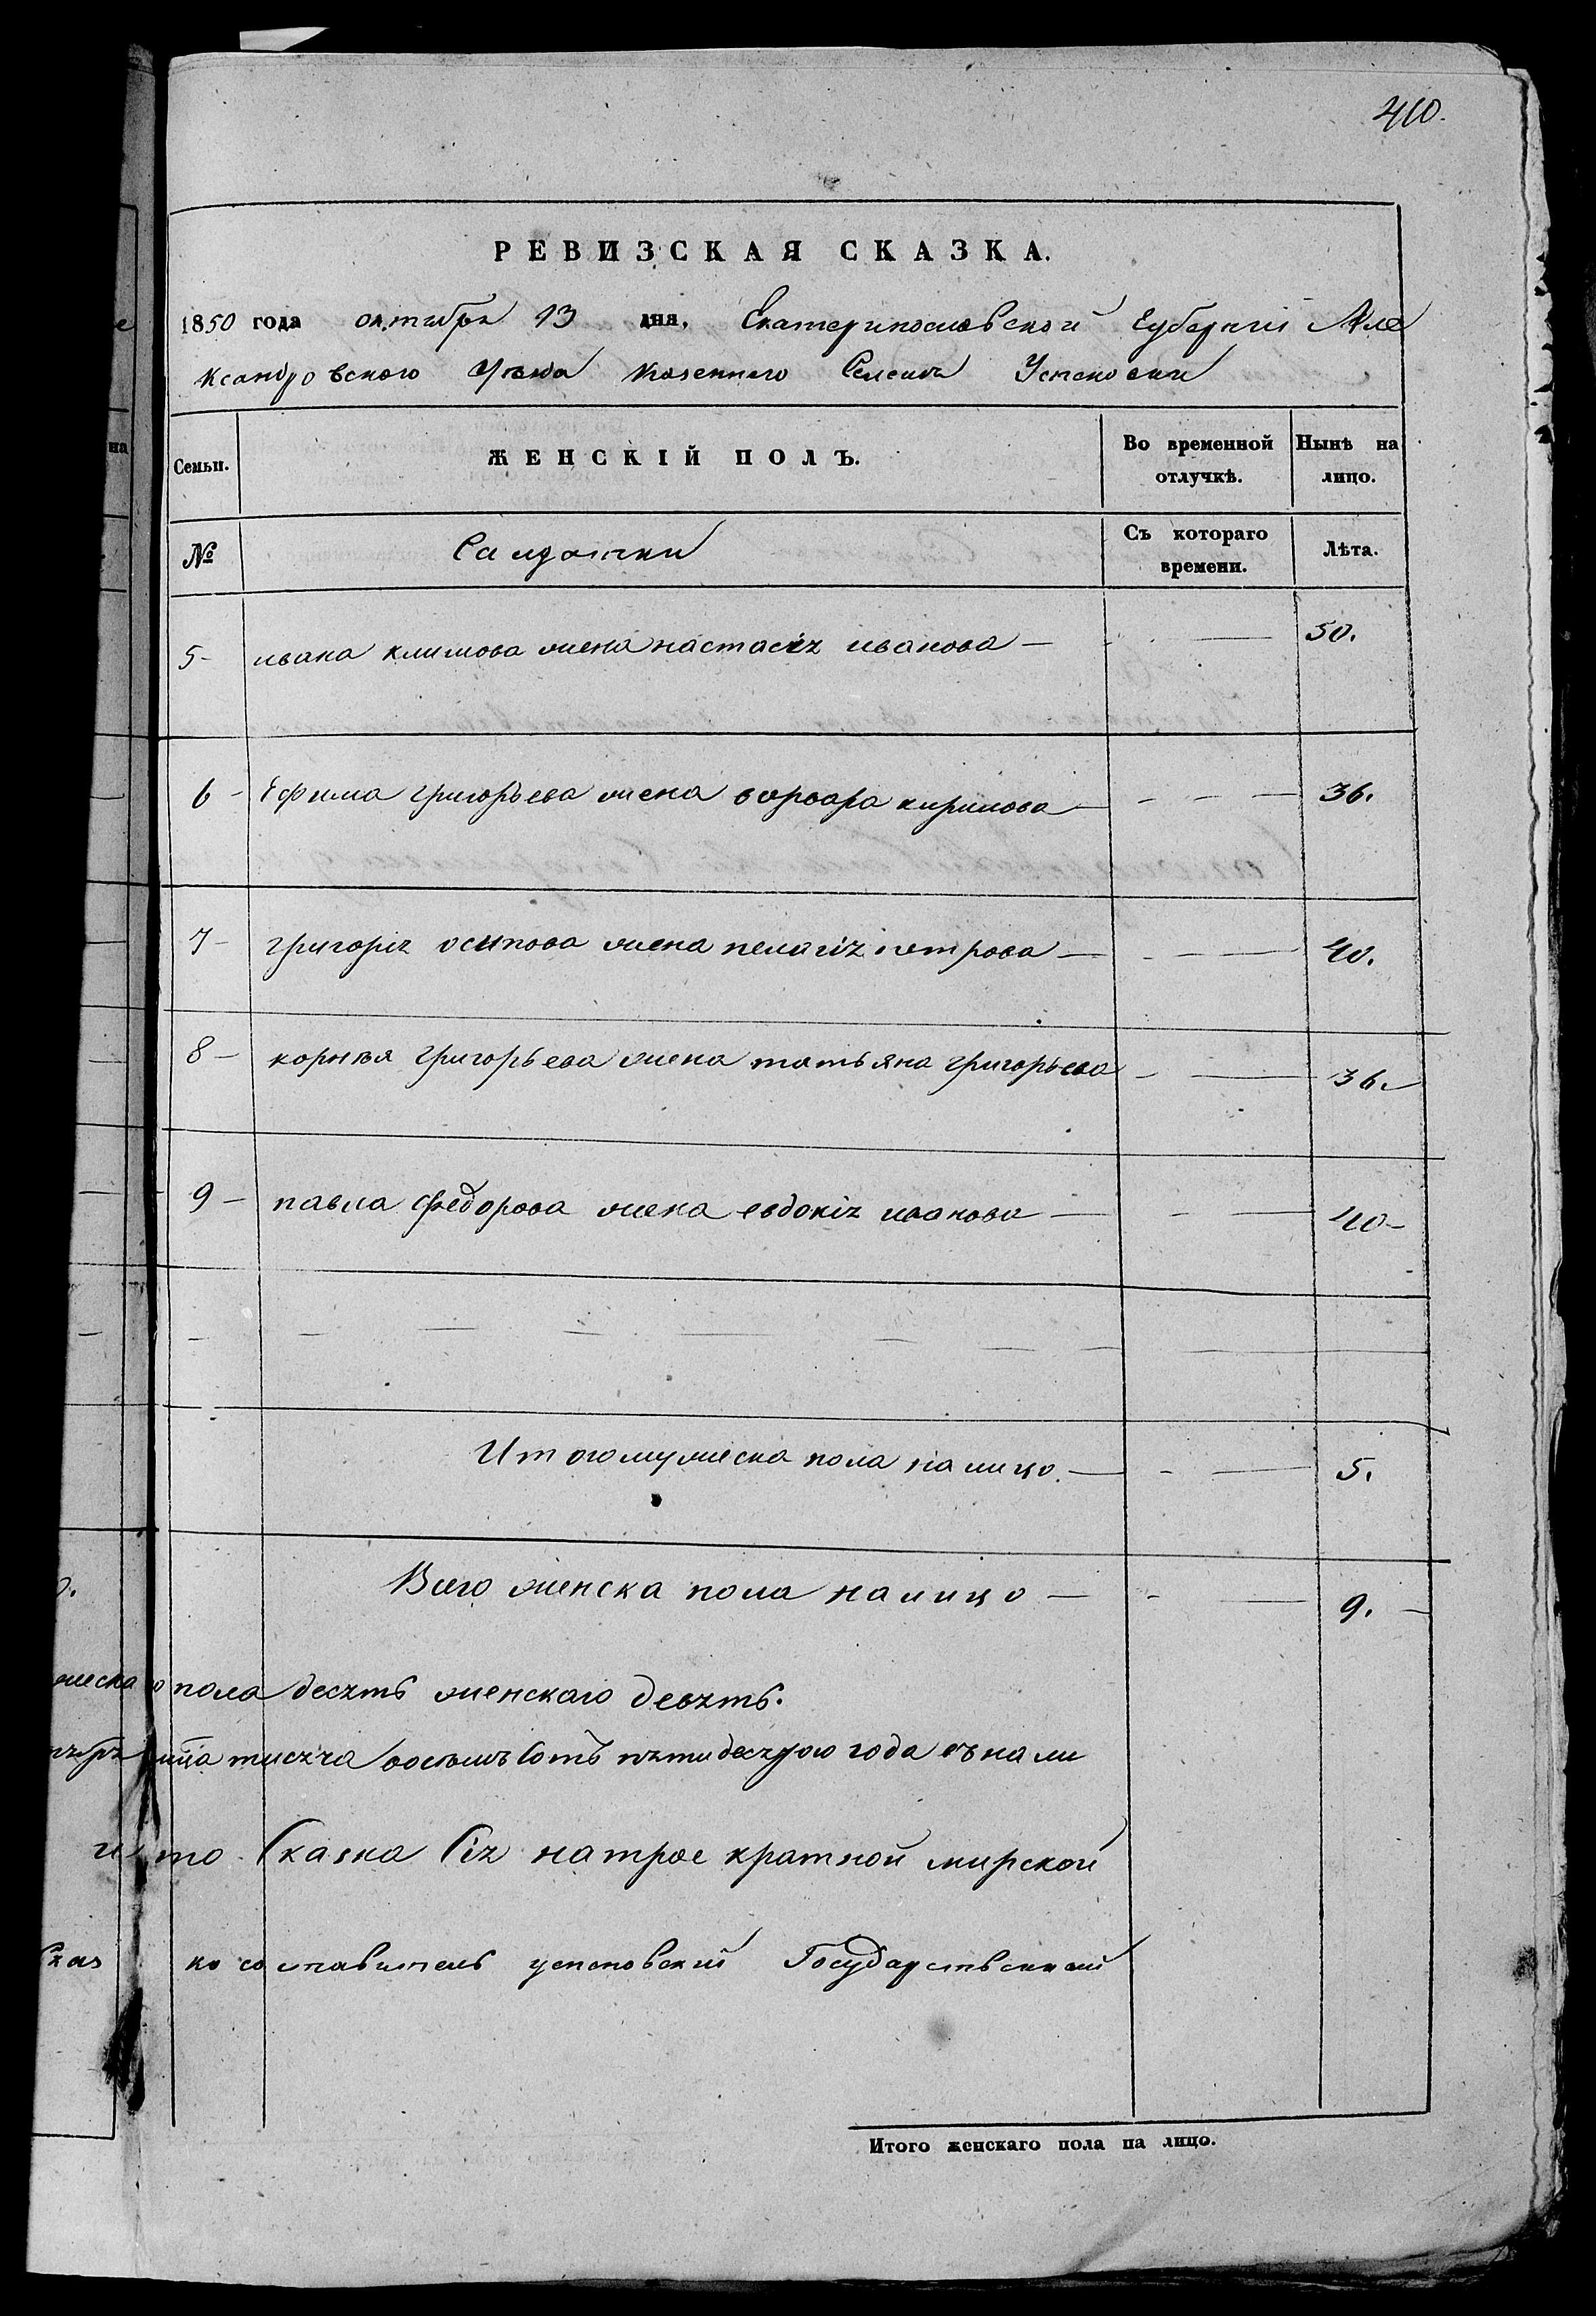 410.
РЕВИЗСКАЯ СКАЗКА.
1850 года октября 13 дня, Екатеринославской Губернiи Але
ксандровского уѣзда казеннаго Селенія Успеновки
Семьи. ЖЕНСКІЙ ПОЛЪ. Во временной отлучкѣ. Нынѣ на лицо.
№ Салдатки Съ котораго времени. Лѣта.
5 - ивана климова жена настасія иванова — 50.
6 - Ефима григорьева жена варвара кирилова — 36.
7 - григорія осипова жена пелагія петрова — 40.
8 - корнѣя григорьева жена татьяна григорьева — 36.
9 - павла федорова жена евдокія иванова — 40 -
Итого мужеска пола на лицо. — 5.
Всего женска пола на лицо — 9. —
жеска го пола десять женскаго девять.
мца тисяча восемьсотъ пятидесятого года съ нали
то Сказка Сія на трое кратной мирской
сказ ко составитель успеновский Государственный
Итого женскаго пола на лицо.